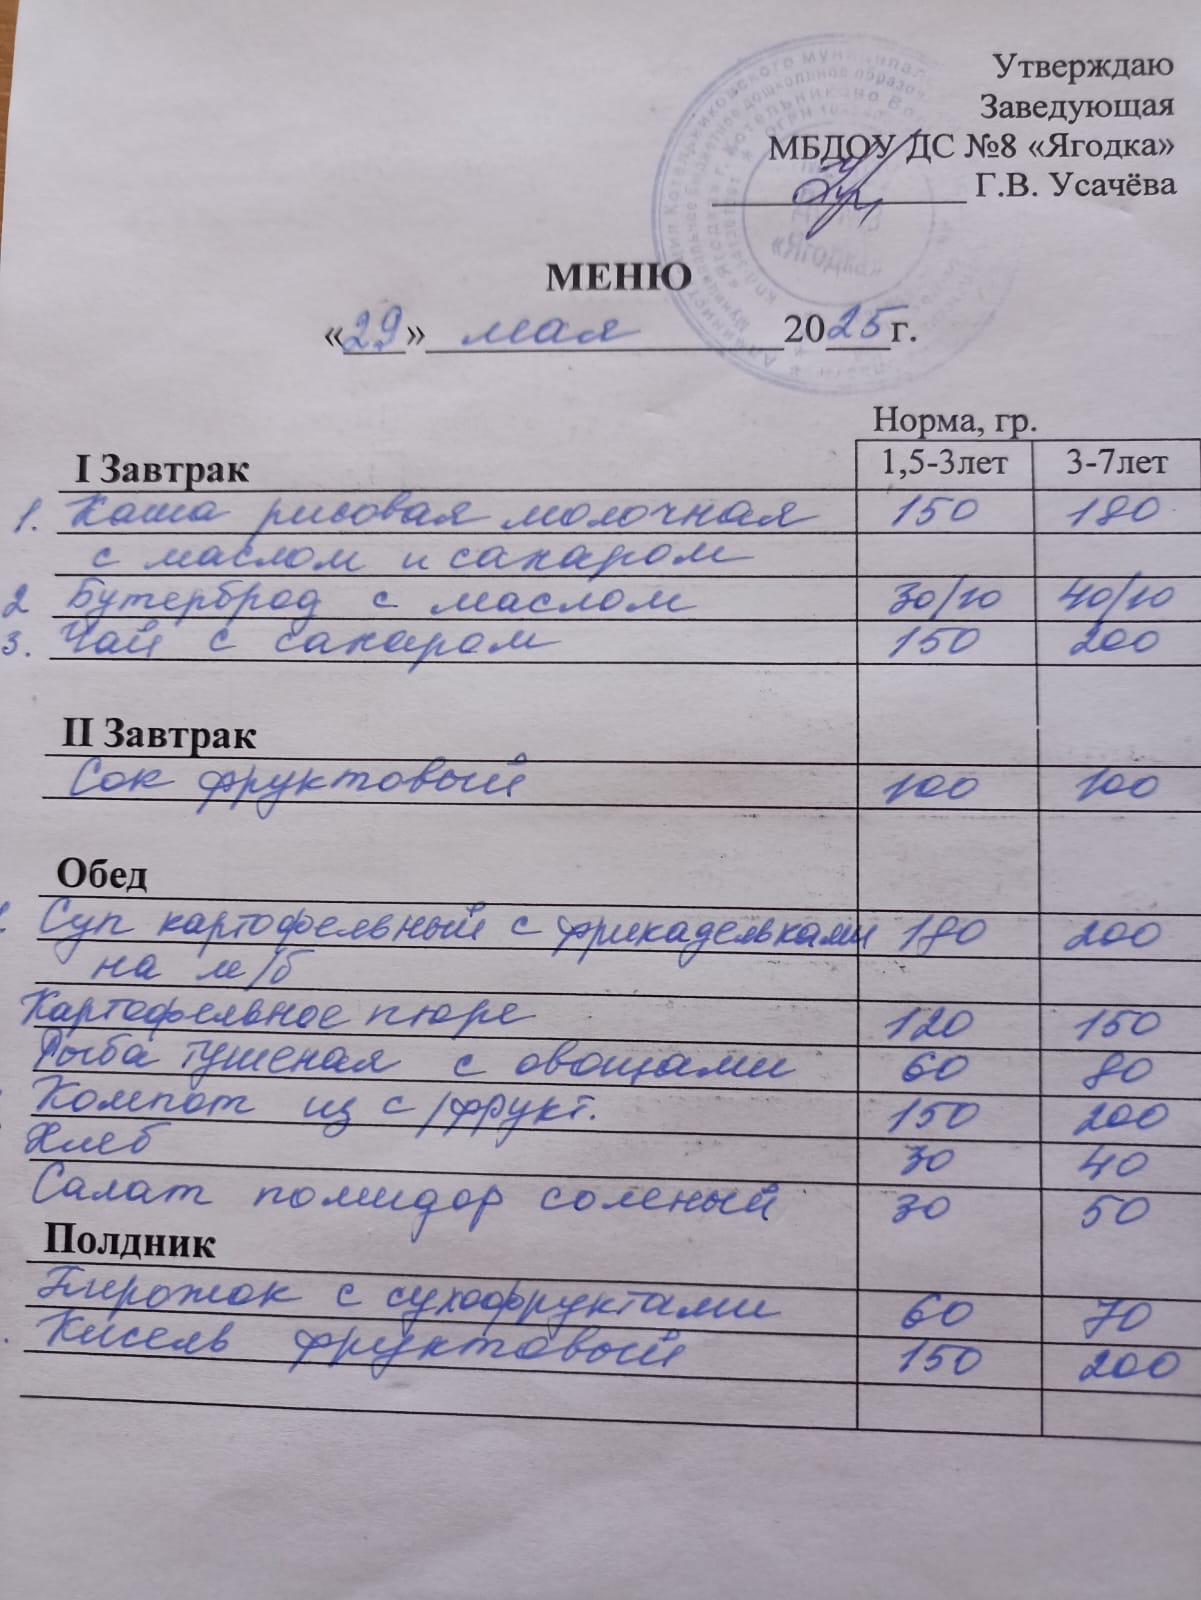 Утверждаю
Заведующая
МБДОУ ДС №8 «Ягодка»
Г.В. Усачёва
«Ягодка»
МЕНЮ
«29» мая 2025г.
Норма, гр.
I Завтрак 1,5-3лет 3-7лет
1. Каша рисовая молочная 150 180
с маслом и сахаром
2 Бутерброд с маслом 30/10 40/10
3. Чай с сахаром 150 200
II Завтрак
Сок фруктовый 100 100
Обед
Суп картофельный с фрикадельками 180 200
на м/б
Картофельное пюре 120 150
Рыба тушеная с овощами 60 80
Компот из с/фрукт. 150 200
Хлеб 30 40
Салат помидор соленый 30 50
Полдник
Пирожок с сухофруктами 60 70
Кисель фруктовый 150 200